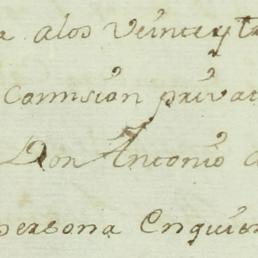 a alos Veinte y t
Comision privat
Don Antonio
persona Enquien